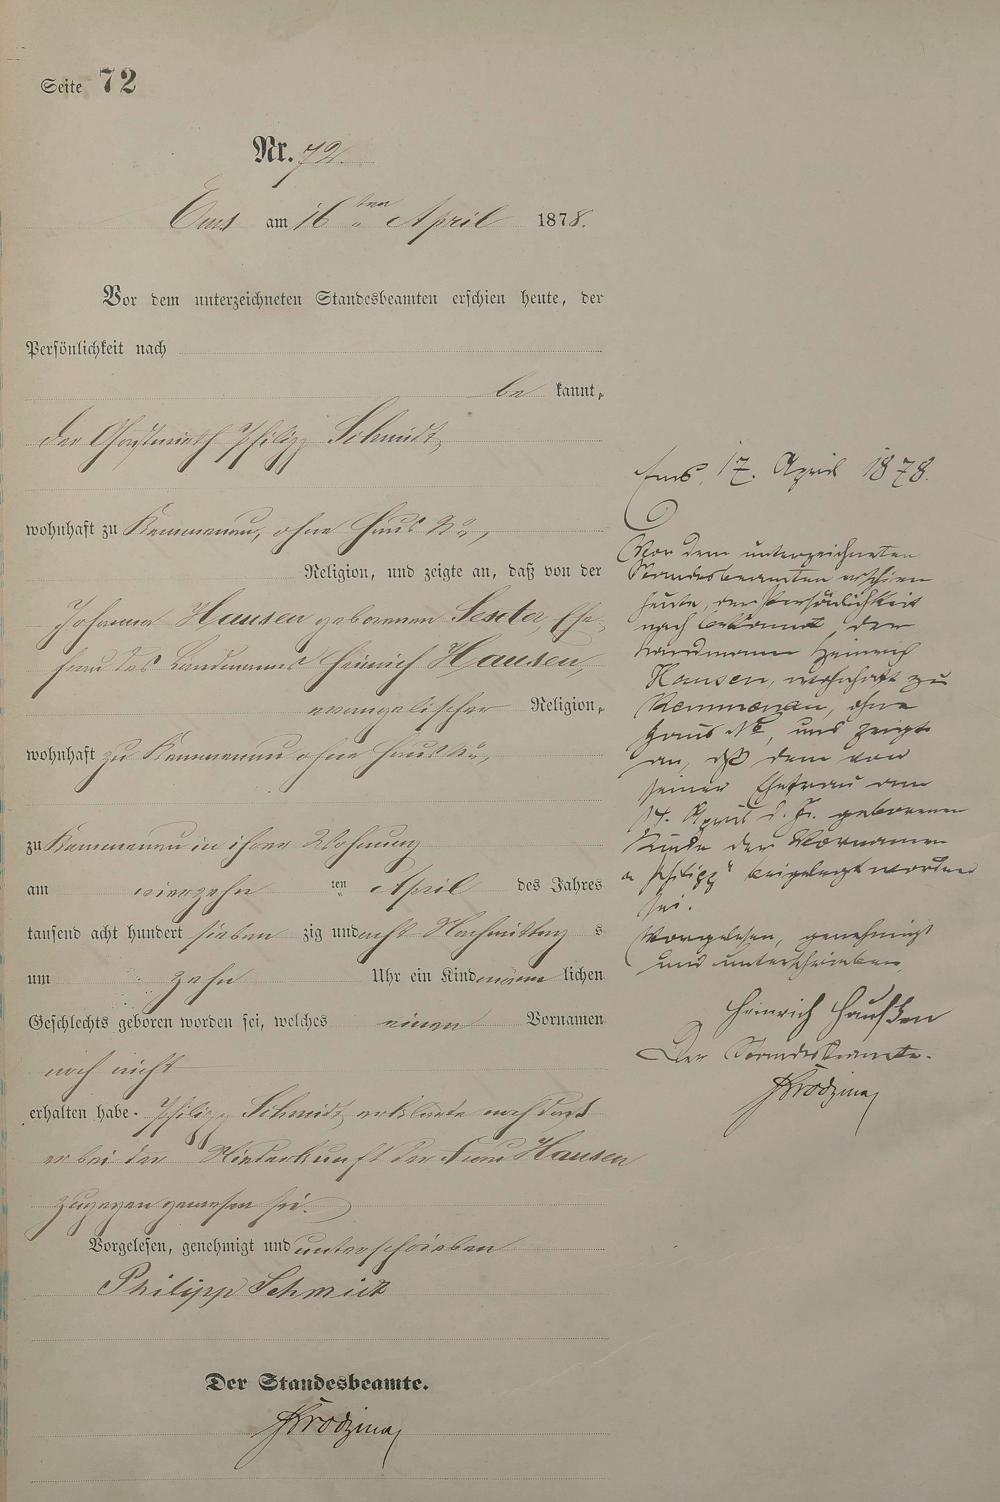 Seite 72
Nr. 72.
Ems am 16ten April 1878.
Vor dem unterzeichneten Standesbeamten erschien heute, der
Persönlichkeit nach
be kannt,
der Gastwirth Philipp Schmidt,
wohnhaft zu Kemmenau, ohne Haus No,
Religion, und zeigte an, daß von der
Johanna Hausen geborenen, Ehe-
frau des Landmanns Heinrich Hausen,
evangelischer Religion,
wohnhaft zu Kemmenau ohne Haus No,
zu Kemmenau in ihrer Wohnung
am vierzehn ten April des Jahres
tausend acht hundert sieben zig und acht Nachmittag s
um zehn Uhr ein Kind männ lichen
Geschlechts geboren worden sei, welches einen Vornamen
noch nicht
erhalten habe. Philipp Schmidt, erklärte noch daß
er bei der Niederkunft der Frau Hausen
zugegen gewesen sei.
Vorgelesen, genehmigt und unterschrieben
Philipp Schmidt
Der Standesbeamte.
Ems, 17. April 1878.
Vor dem unterzeichneten
Standesbeamten erschien
heute, der Persönlichkeit
nach bekannt, der
Landmann Heinrich
Hausen, wohnhaft zu
Kemmenau, ohne
Haus No, und zeigte
an, daß dem von
seiner Ehefrau am
14. April d. Js. geborenen
Kinde der Vornamen
„Philipp" beigelegt worden
sei.
Vorgelesen, genehmigt
und unterschrieben
Heinrich Haußen
Der Standesbeamte.